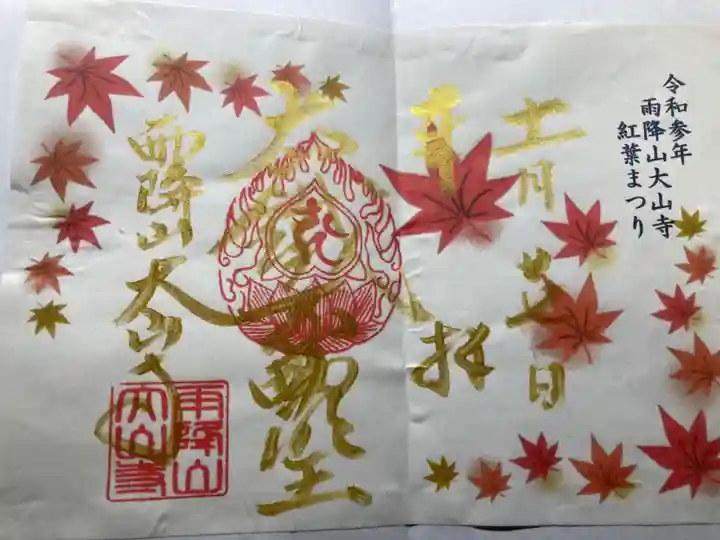 令和参年
雨降山大山寺
紅葉まつり
十一月廿日
奉拝
大聖不動明王
雨降山大山寺
雨降山
大山寺